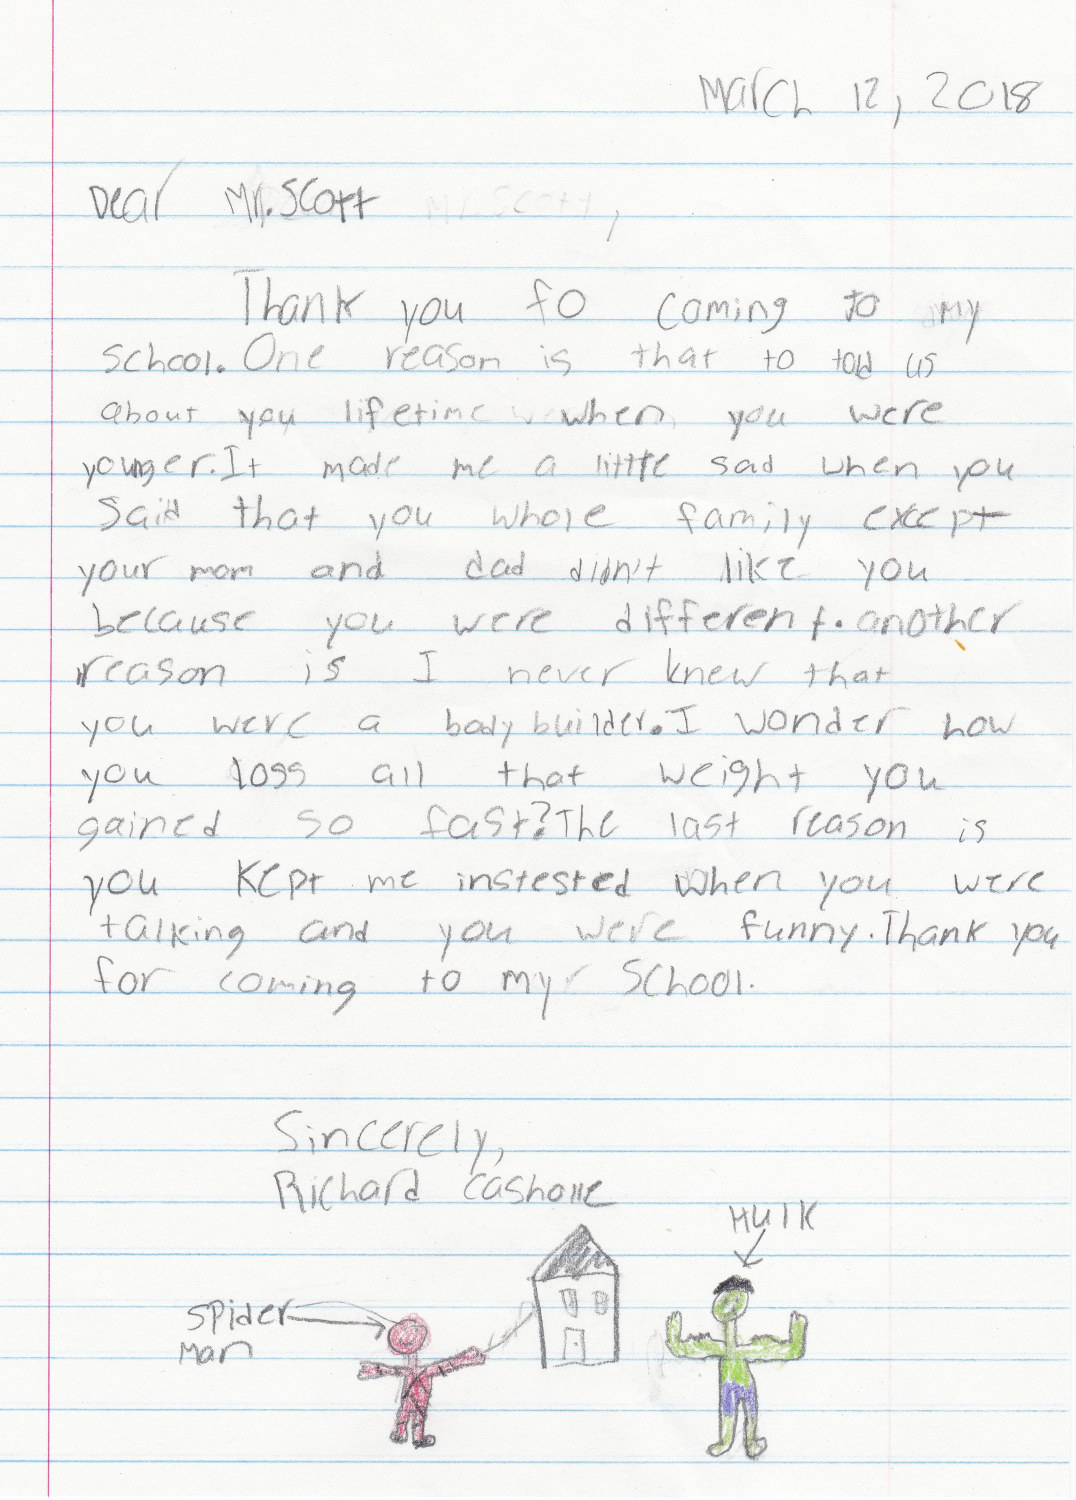 March 12, 2018
Dear Mr. Scott Mr. Scott,
Thank you fo coming to my
school. One reason is that to told us
about you lifetime when you were
younger. It made me a little sad when you
said that you whole family except
your mom and dad didn't like you
because you were different. another
reason is I never knew that
you were a body builder. I wonder how
you loss all that weight you
gained so fast? The last reason is
you kept me instested when you were
talking and you were funny. Thank you
for coming to my school.
Sincerely,
Richard
Hulk
Spider
Man